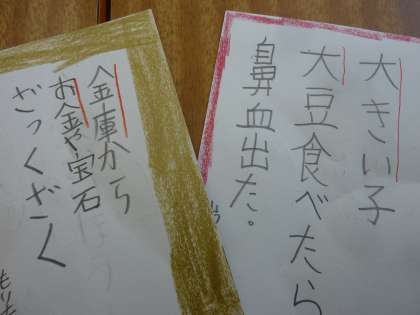 大きい子
大豆食べたら
鼻血出た。
金庫から
お金や宝石
ざっくざく